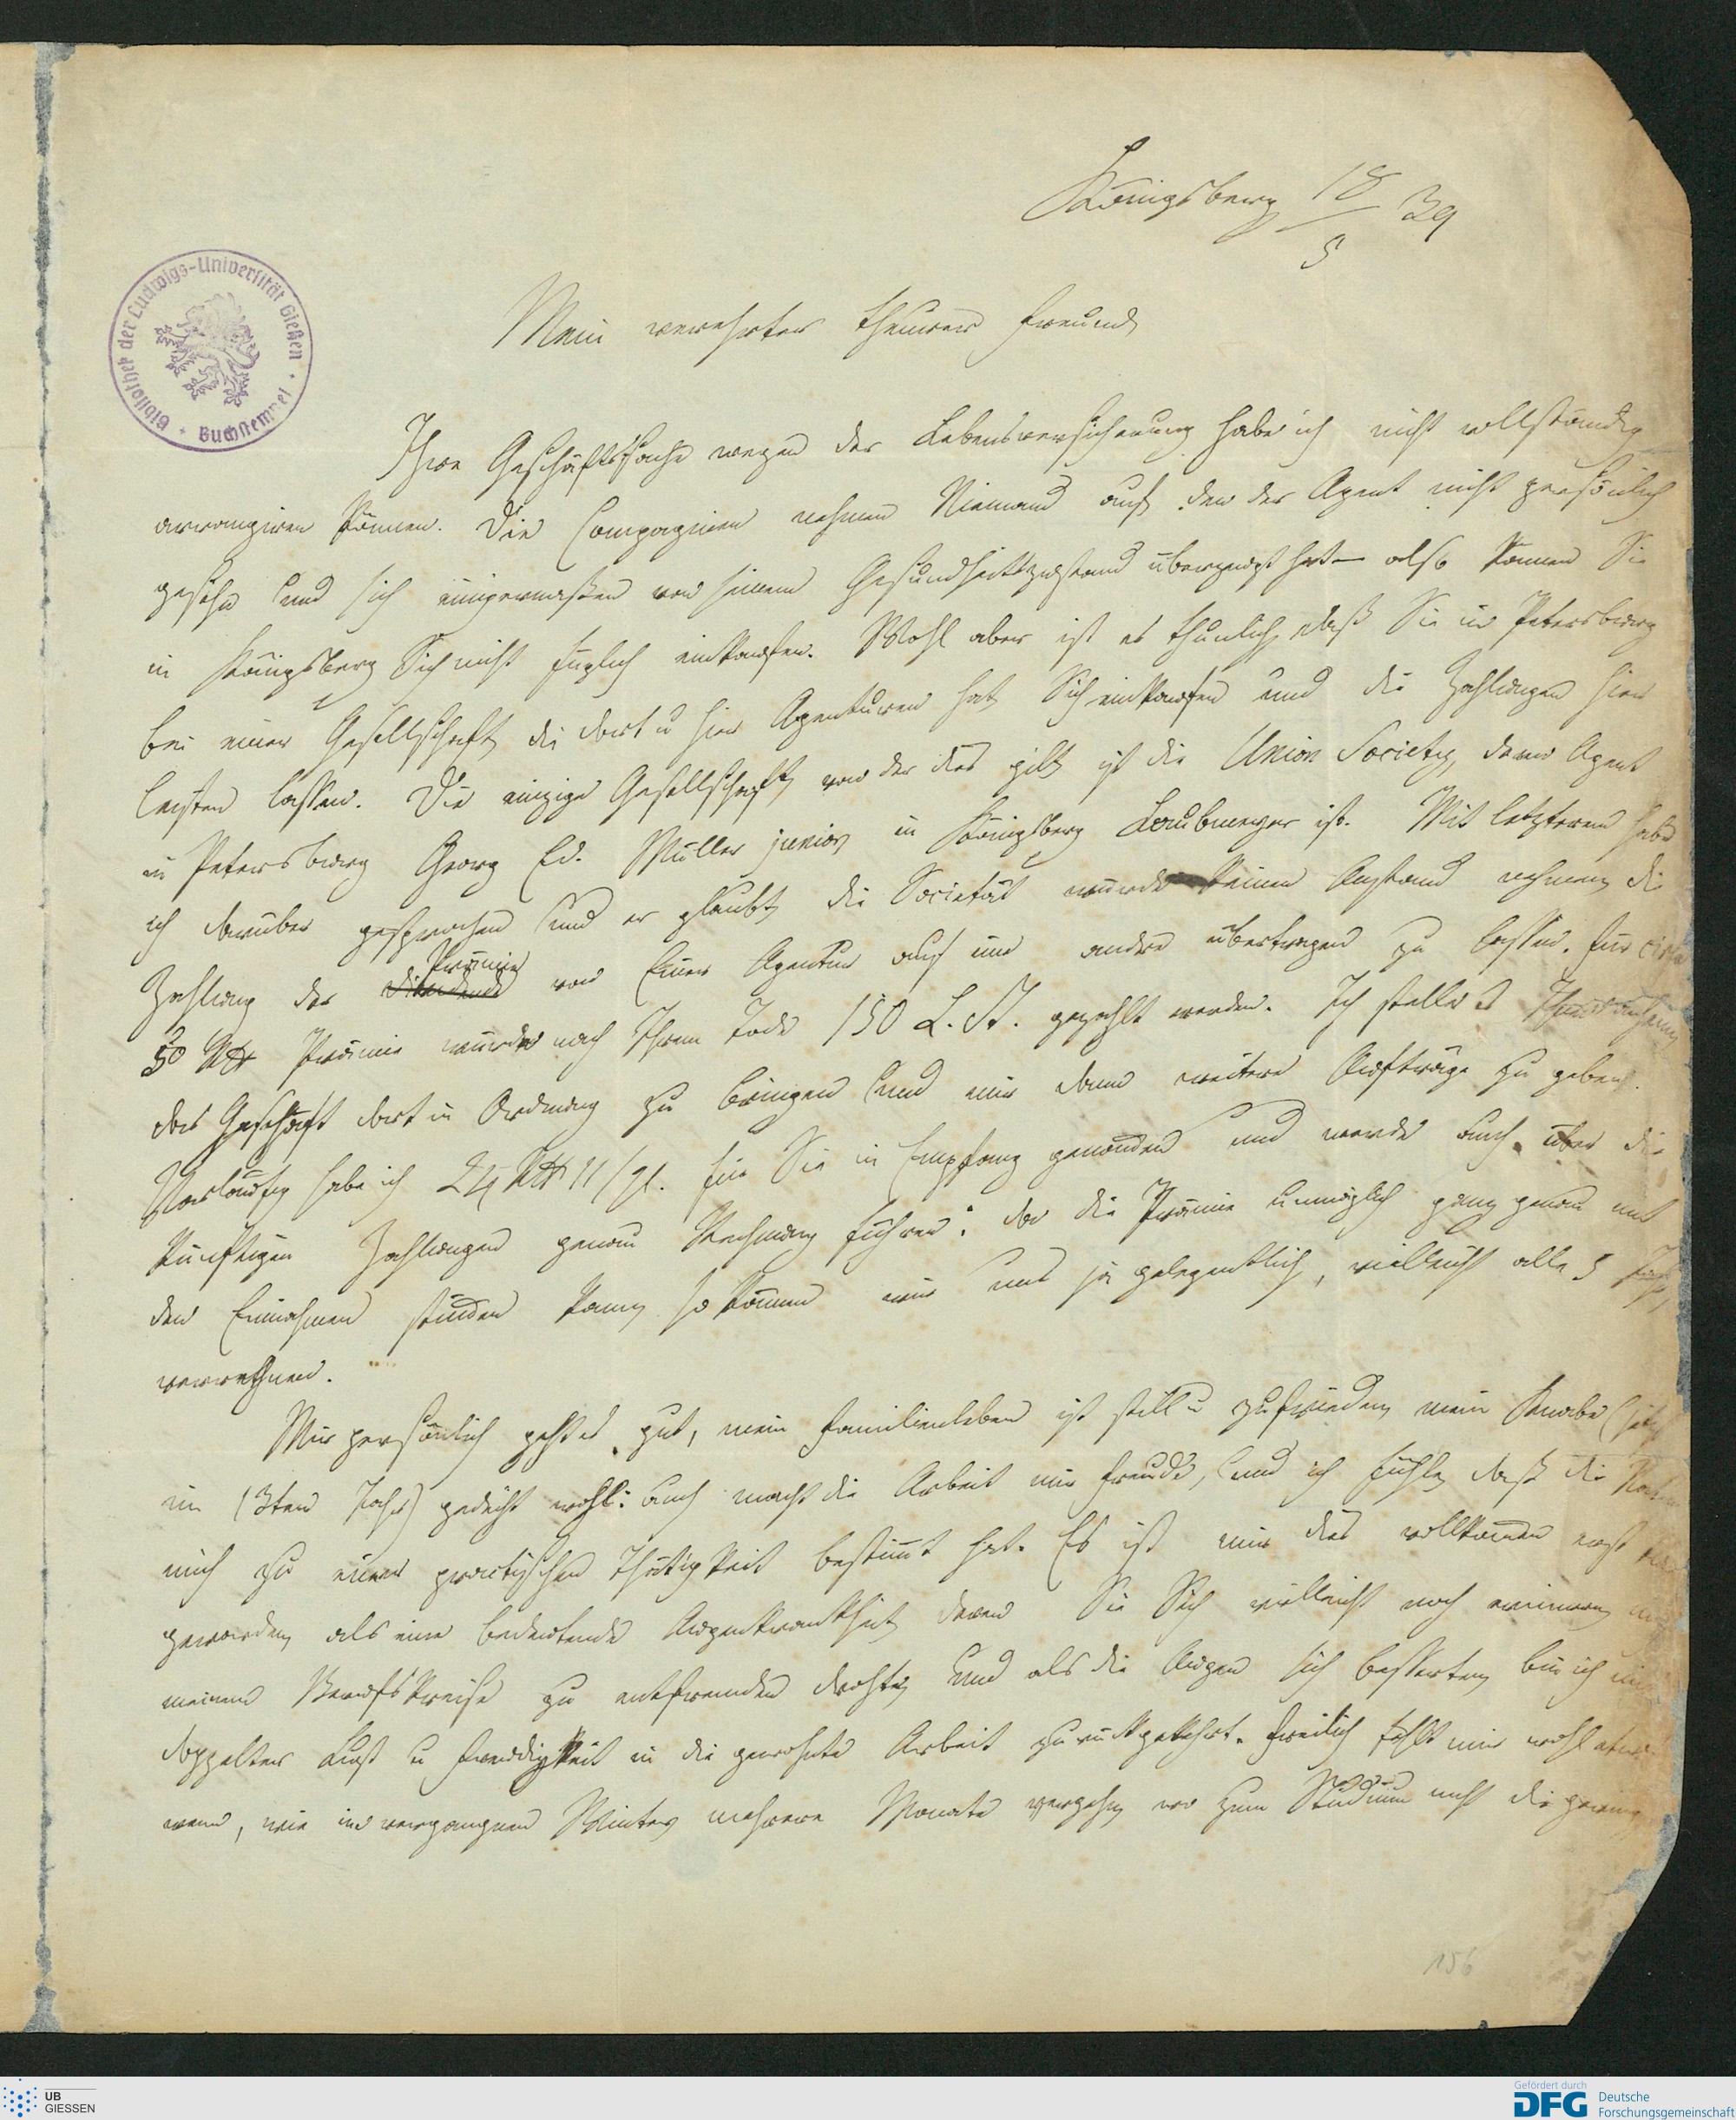 Königsberg 18/5 39
Bibliothek der Ludwigs-Universität Gießen · Buchstempel ·
Mein verehrter theurer Freund
Ihre Geschäftssache wegen der Lebensversicherung habe ich nicht vollständig
arrangiren können. Die Compagnien nehmen Niemand auf, den der Agent nicht persönlich
gesehn und sich einigermaßen von seinem Gesundheitszustand überzeugt hat – also können Sie
in Königsberg Sich nicht füglich einkaufen. Wohl aber ist es thunlich, daß Sie in Petersburg
bei einer Gesellschaft, die dort u hier Agenturen hat, Sich einkaufen und die Zahlungen hier
leisten lassen. Die einzige Gesellschaft, von der dies gilt, ist die Union Society, deren Agent
in Petersburg Georg Ed. Müller junior, in Königsberg Laubmeyer ist. Mit letzterem habe
ich darüber gesprochen und er glaubt, die Societät würde keinen Anstand nehmen, die
Zahlung der Prämie von Einer Agentur auf eine andre übertragen zu lassen. Für circa
50 Rth Prämie würden nach Ihrem Tode 150 L. St. gezahlt werden. Ich stelle es Ihnen anheim,
das Geschäft dort in Ordnung zu bringen und mir dann weitere Aufträge zu geben.
Vorläufig habe ich 24 Rth 11 Sgl. für Sie in Empfang genommen und werde auch über die
künftigen Zahlungen genau Rechnung führen: da die Prämie unmöglich ganz genau mit
den Einnahmen stimmen kann, so können wir uns ja gelegentlich, vielleicht alle 5 Jahr,
verrechnen.
Mir persönlich geht es gut, mein Familienleben ist still u zufrieden, mein Knabe (jetzt
im 13ten Jahr) gedeiht wohl: auch macht die Arbeit mir Freude, und ich fühle, daß die Natur
mich zu einer practischen Thätigkeit bestimmt hat. Es ist mir dies vollkommen erst klar
geworden, als eine bedeutende Augenkrankheit, deren Sie Sich vielleicht noch erinnern, mich
meinem Berufskreise zu entfremden drohte, und als die Augen sich besserten, bin ich mit
doppelter Lust u Freudigkeit in die gewohnte Arbeit zurückgekehrt. Freilich fehlt mir wohl etwas
wenn, wie im vergangnen Winter, mehrere Monate vergehn, wo zum Studium nicht die gering
156
UB
GIESSEN
Gefördert durch
DFG Deutsche
Forschungsgemeinschaft